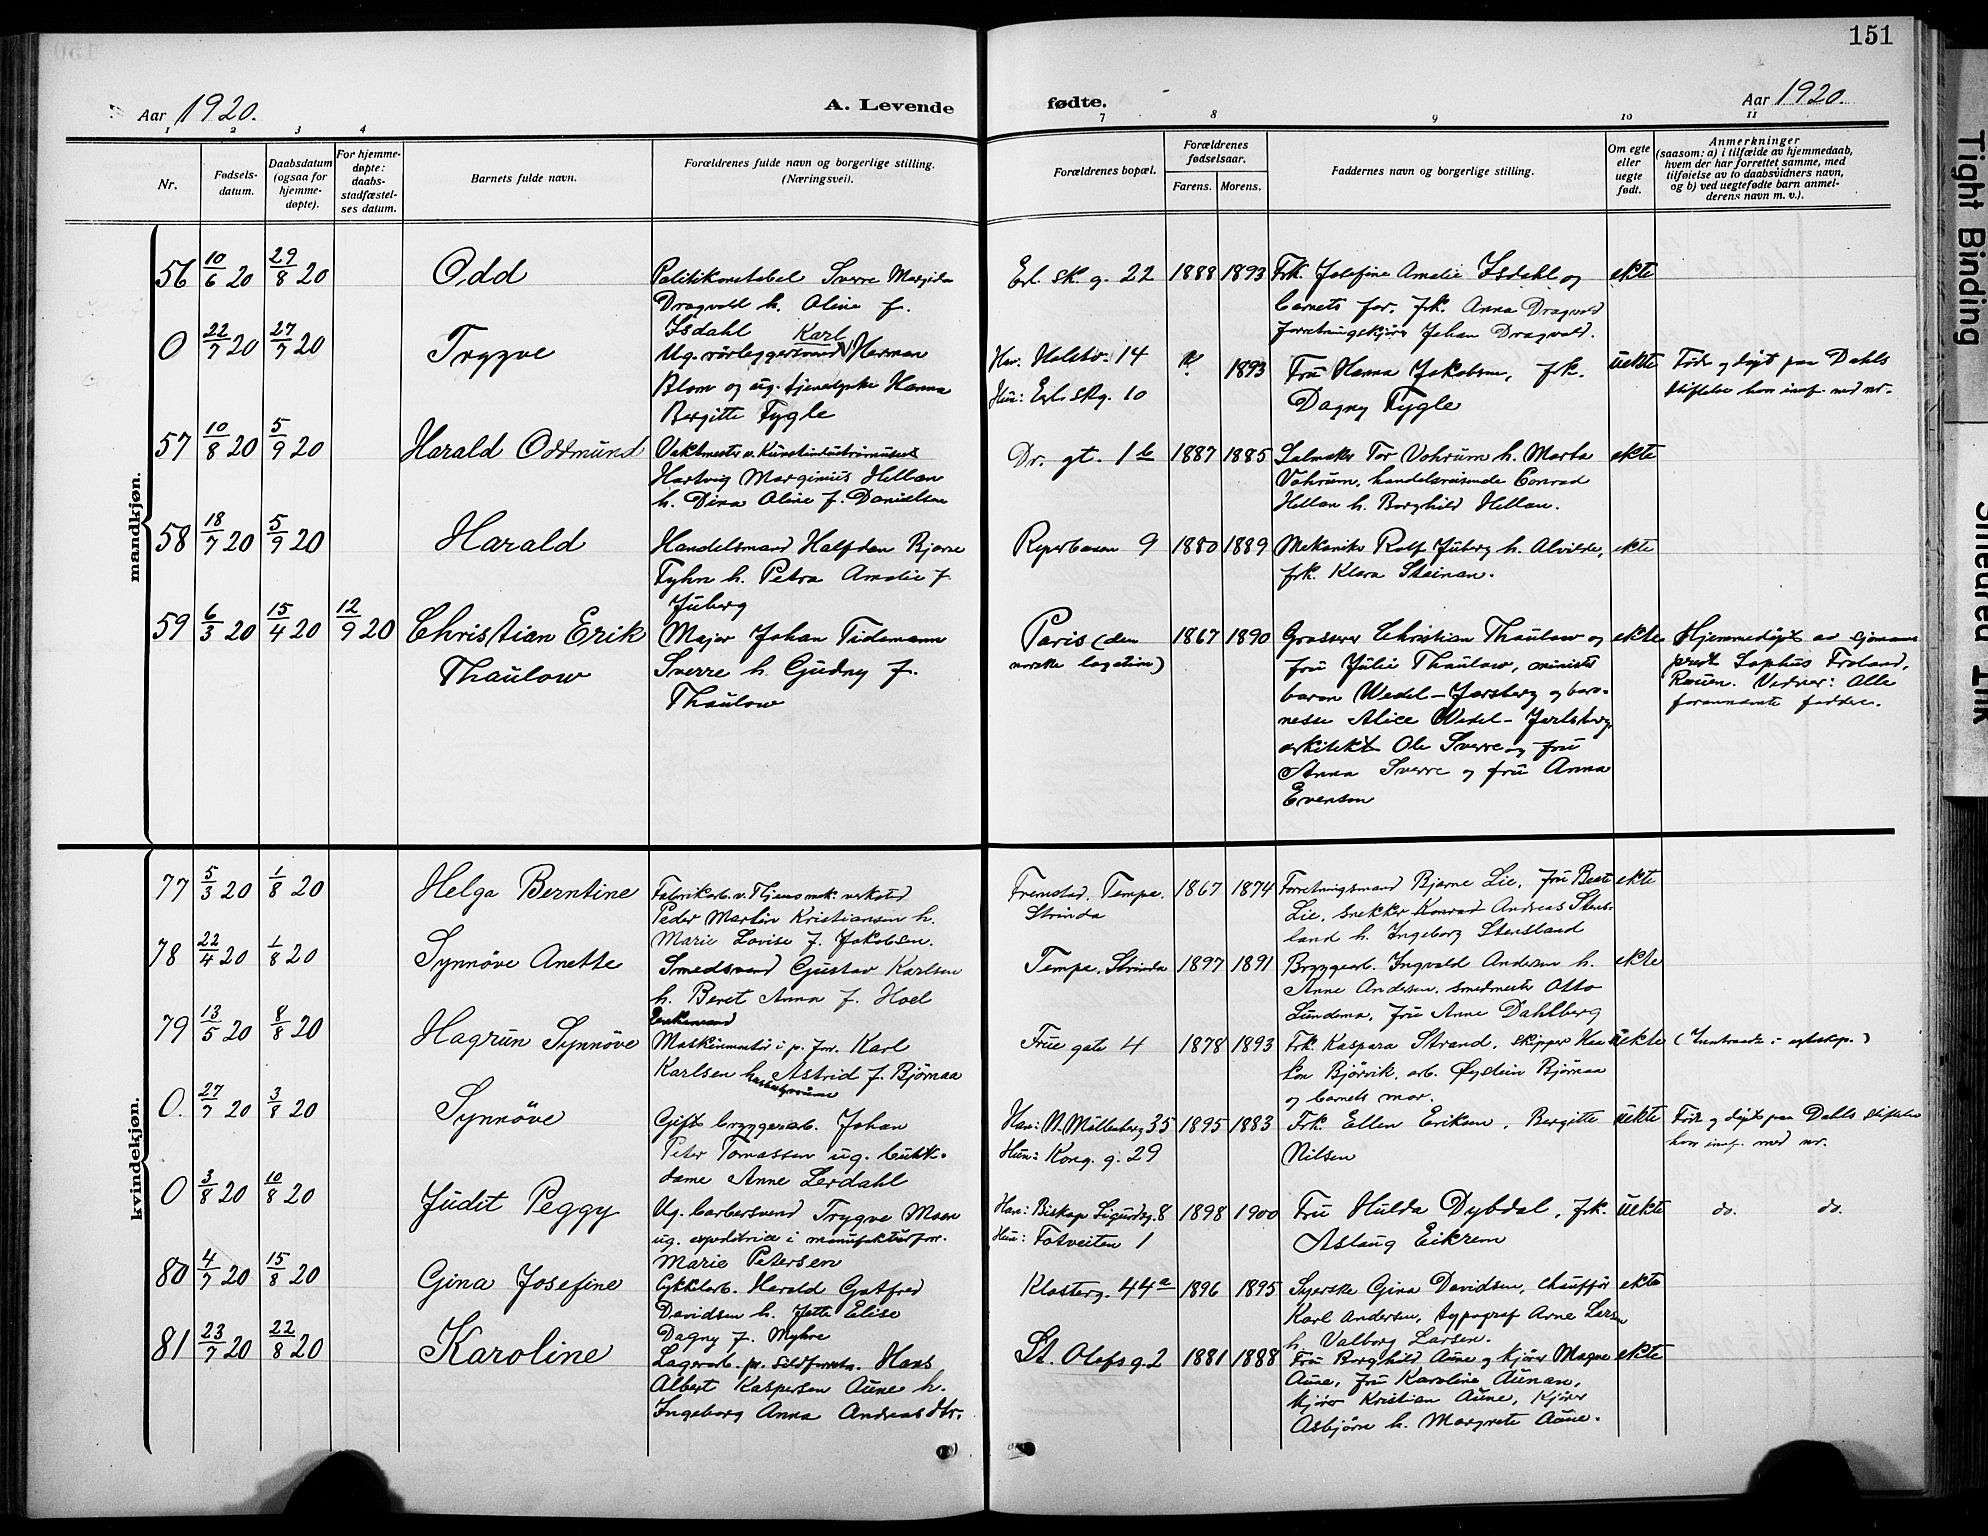 151
Aar 1920.
A. Levende
fødte.
Aar 1920.
1 2 3 4
7 8 9 10 11
Nr.
Fødsels-
datum.
Daabsdatum
(ogsaa for
hjemme-
døpte).
For hjemme-
døpte:
daabs-
stadfæstel-
ses datum.
Barnets fulde navn.
Forældrenes fulde navn og borgerlige stilling.
(Næringsvei).
Forældrenes bopæl.
Forældrenes
fødselsaar.
Farens. Morens.
Faddernes navn og borgerlige stilling.
Om egte
eller
uegte
født.
Anmerkninger
(saasom: a) i tilfælde av hjemmedaab,
hvem der har forrettet samme, med
tilføielse av to daabsvidners navn,
og b) ved uegtefødte barn anmel-
derens navn m. v.).
mandkjøn.
56 10/6 20 29/8 20 Odd
Politikonstabel Sverre
Dragvold h. Oline f.
Isdahl
Erl. Sk. g. 22 1888 1893
Frk. Josefine Amalie Isdahl og
barnets far, frk. Anna Dragvold
Johan Dragvold.
ekte
0 22/7 20 27/7 20 Trygve
Karl
Ug. rörleggersvend Herman
Blom og ug. Hanna
Bergitte Tygle
Han: 14
Hun: Erl. Skg. 10
1893
Fru Hanna Jakobsen, frk.
Dagny Tygle
uekte
Född og døpt paa Dahls
stiftelse hvor innf. med nr.
57 10/8 20 5/9 20 Harald Oddmund
Vaktmester v. Kunstindustrimuseet
Hartvig Marginius Hellan
h. Dina Oline f. Danielsen
Dr. gt. 1b 1887 1885
Salmaker Tor Vohrum h. Marta
Vohrum, handelsreisende Conrad
Hellan h. Borghild Hellan.
ekte
58 18/7 20 5/9 20 Harald
Handelsmand Halfdan Bjarne
Tyhn h. Petra Amalie f.
Juberg
Reperbanen 9 1880 1889
Mekaniker Rolf Juberg h. Alvilde,
frk. Klara Steinan.
ekte
59 6/3 20 15/4 20 12/9 20 Christian Erik
Thaulow
Major Johan Tidemann
Sverre h. Gudny f.
Thaulow
Paris (den
norske legation)
1867 1890
Grosserer Christian Thaulow og
fru Julie Thaulow, minister
baron Wedel-Jarlsberg og baro-
nesse Alice Wedel-Jarlsberg
arkitekt Ole Sverre og fru
Anna Sverre og fru Anna
Evensen
ekte
Hjemmedøpt av sjømanns
prest Sophus Froland,
Rouen. Vidner: Alle
forannævnte faddere.
kvindekjøn.
77 5/3 20 1/8 20 Helga Berntine
Fabrikarb. v. Thjems mek. verksted
Peder Martin Kristiansen h.
Marie Lovise f. Jakobsen.
Frenstad, Tempe,
Strinda
1867 1874
Forretningsmand Bjarne Lie, fru Berte
Lie, snekker Konrad Andreas Stens-
land h. Ingeborg Stensland
ekte
78 22/4 20 1/8 20 Synnöve Anette
Smedsvend Gustav Karlsen
h. Beret Anna f. Hoel
Tempe, Strinda 1897 1891
Bryggearb. Ingvald Andersen h.
Anne Andersen, smedmester Otto
Lundemo, fru Anne Dahlberg
ekte
79 13/5 20 8/8 20 Hagrun Synnöve
Enkemand
Maskinmontør i p. for. Karl
Karlsen h. Astrid f. Bjørnaa
Frue gate 4 1878 1893
Frk. Kaspara Strand, skipper Haa-
kon Björvik, arb. Øystein Bjørnaa
og barnets mor.
uekte
(Inntraadt i egteskap.)
0. 27/7 20 3/8 20 Synnöve
Gift bryggerarb. Johan
Peter Tomassen ug. butik-
dame Anne Lerdahl
Han: N. Möllenberg 35
Hun: Kong. g. 29
1895 1883
Frk. Ellen Eriksen, Bergitte
Nilsen
uekte
Född og døpt paa Dahls stiftelse
hvor innf. med nr.
0 3/8 20 10/8 20 Judit Peggy
Ug. barbersvend Trygve Moen
ug. expeditrice i manufakturforr.
Marie Petersen
Han: Biskop Sigurdsg. 8
Hun: Totveiten 1
1898 1900
Fru Hulda Dybdal, frk.
Aslaug Eikrem
uekte
do. do.
80 4/7 20 15/8 20 Gina Josefine
Cykkelarb. Harald Gotfred
Davidsen h. Jette Elise
Dagny f. Myhre
Klosterg. 44a 1896 1895
Syerske Gina Davidsen, chauffør
Karl Andersen, typograf Arne Larsen
h. Valborg Larsen.
ekte
81 23/7 20 22/8 20 Karoline
Lagerarb. Hans
Albert Kaspersen Aune h.
Ingeborg Anna Andreasdtr.
St. Olafs g. 2 1881 1888
Fru Borghild Aune og kjører Magne
Aune, fru Karoline Aunan,
kjører Kristian Aune, kjører
Asbjørn h. Margrete Aune.
ekte
Tight Binding
Smeared Ink